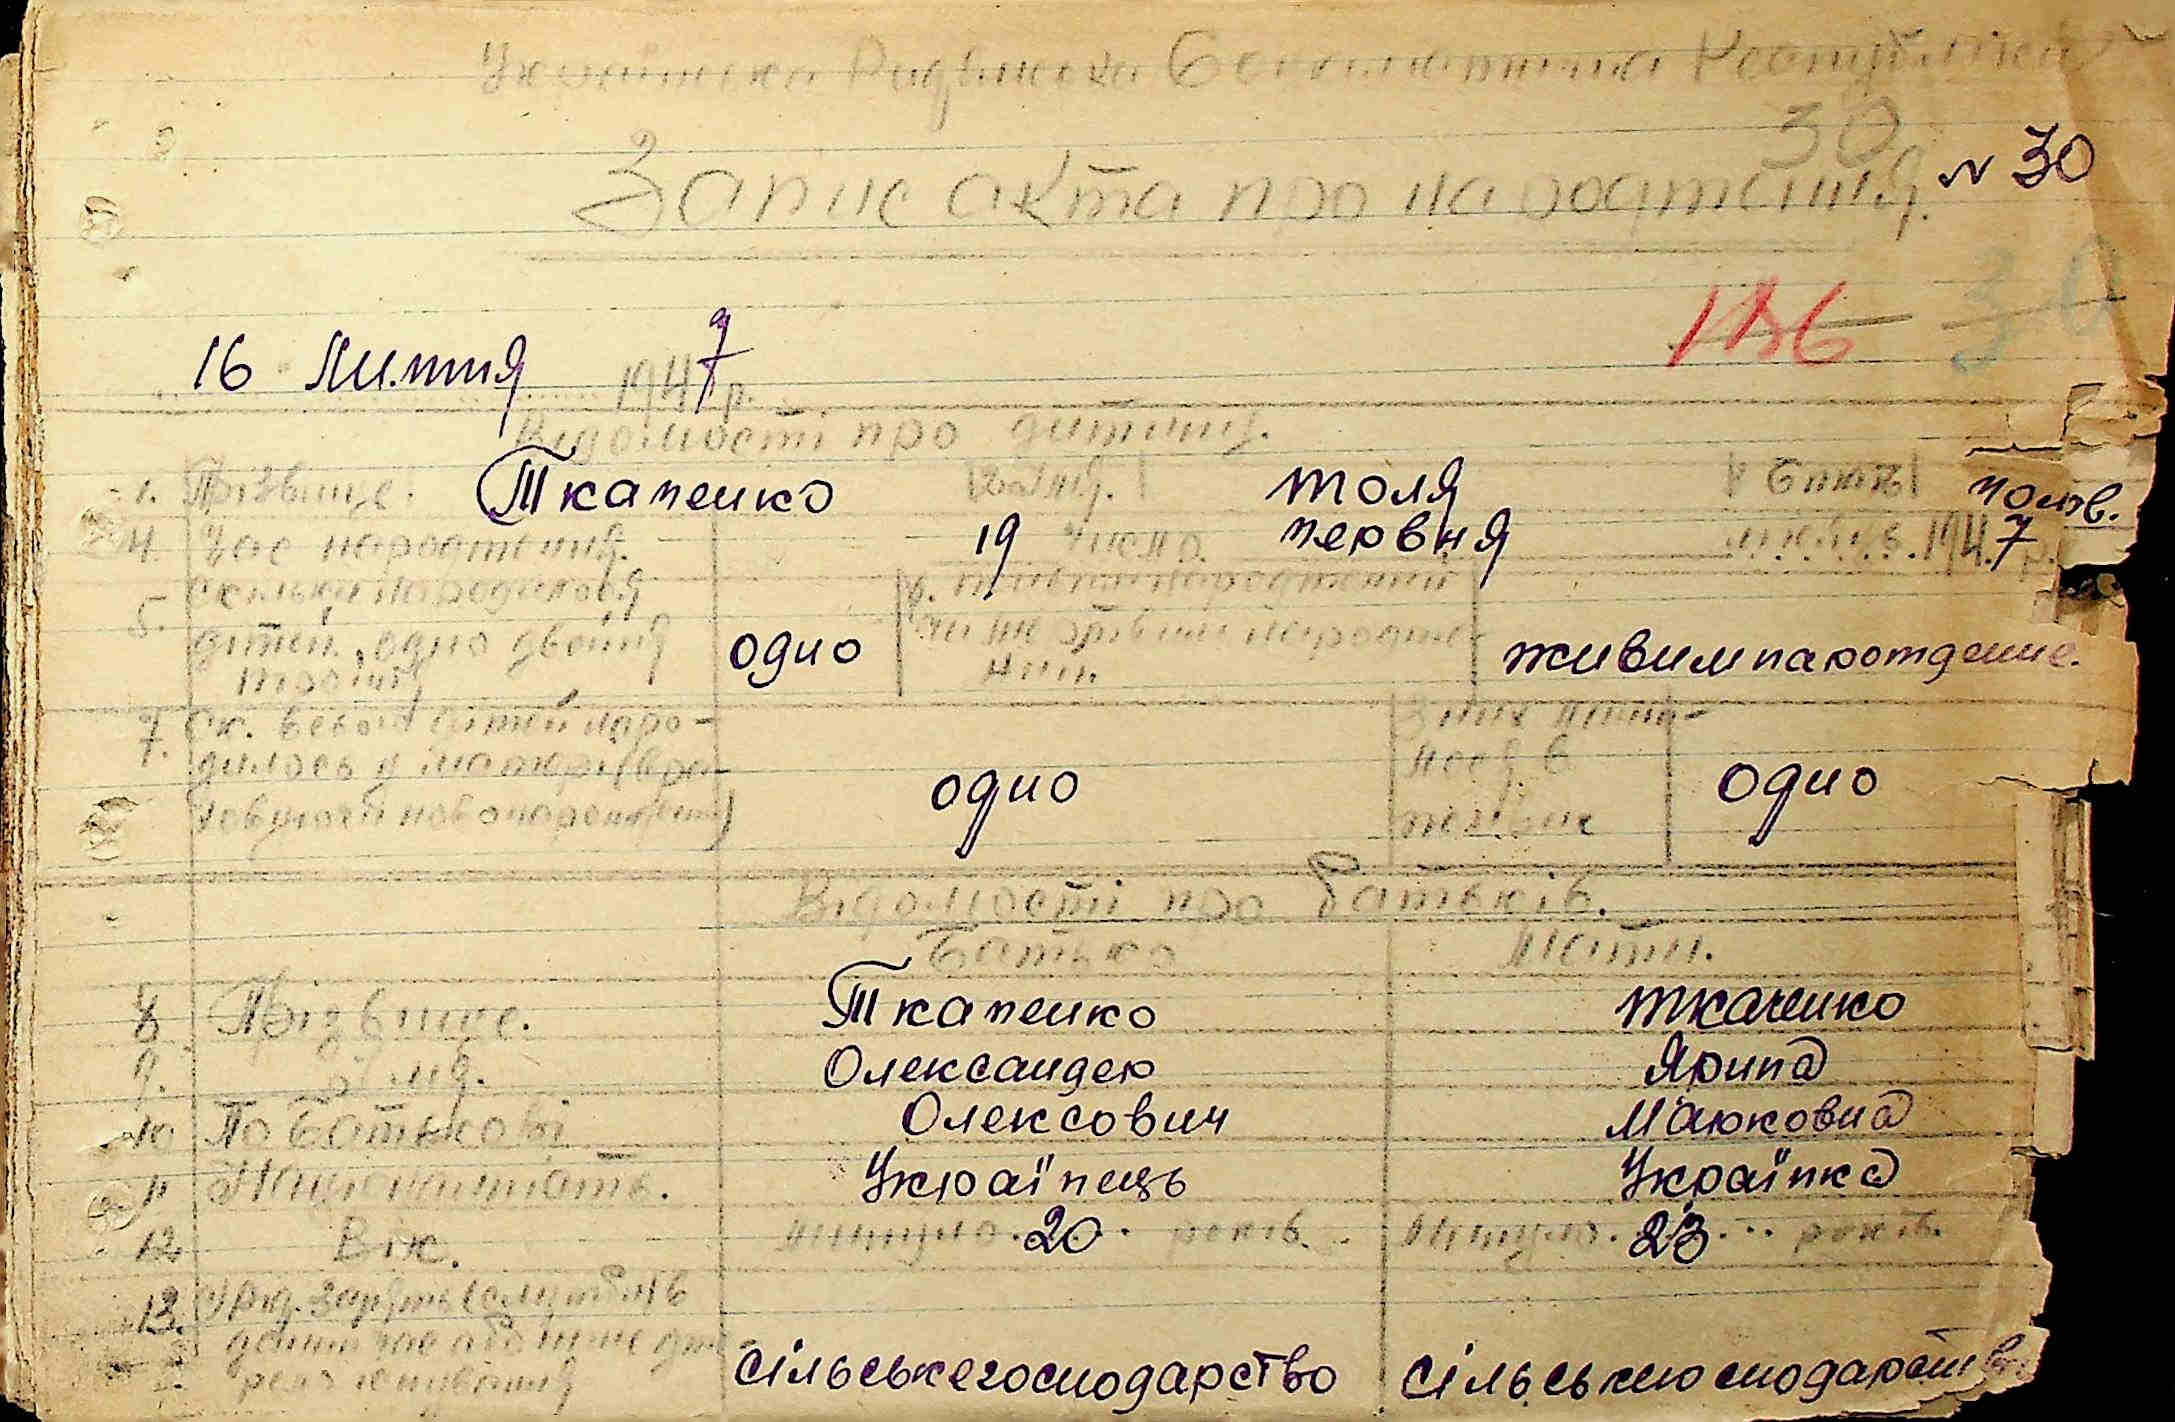 Українська Радянська Соціалістична Республіка
30
Запис акта про народження. N 30
186 30
16 Липня 1947 р.
Відомості про дитину.
1. Прізвище. Ткаченко Ім'я. толя Стать чолов.
4. Час народження. 19 число. червня місяця 1947 р.
5. Скільки народилося дітей, одно двойня тройня одно
живим нарождение.
7. Ск. всього дітей наро-
дилось у матері (вра-
ховуючи новонароджену) одно З них
живе одно
Відомості про батьків.
Батько Мати.
8 Прізвище. Ткаченко ткаченко
9. Ім'я. Олександер Ярина
10 По батькові Олексович Марковна
11 Національність. Українець Українка
12 Вік. минуло 20 років. минуло 23 років.
13.
сільськегосподарство